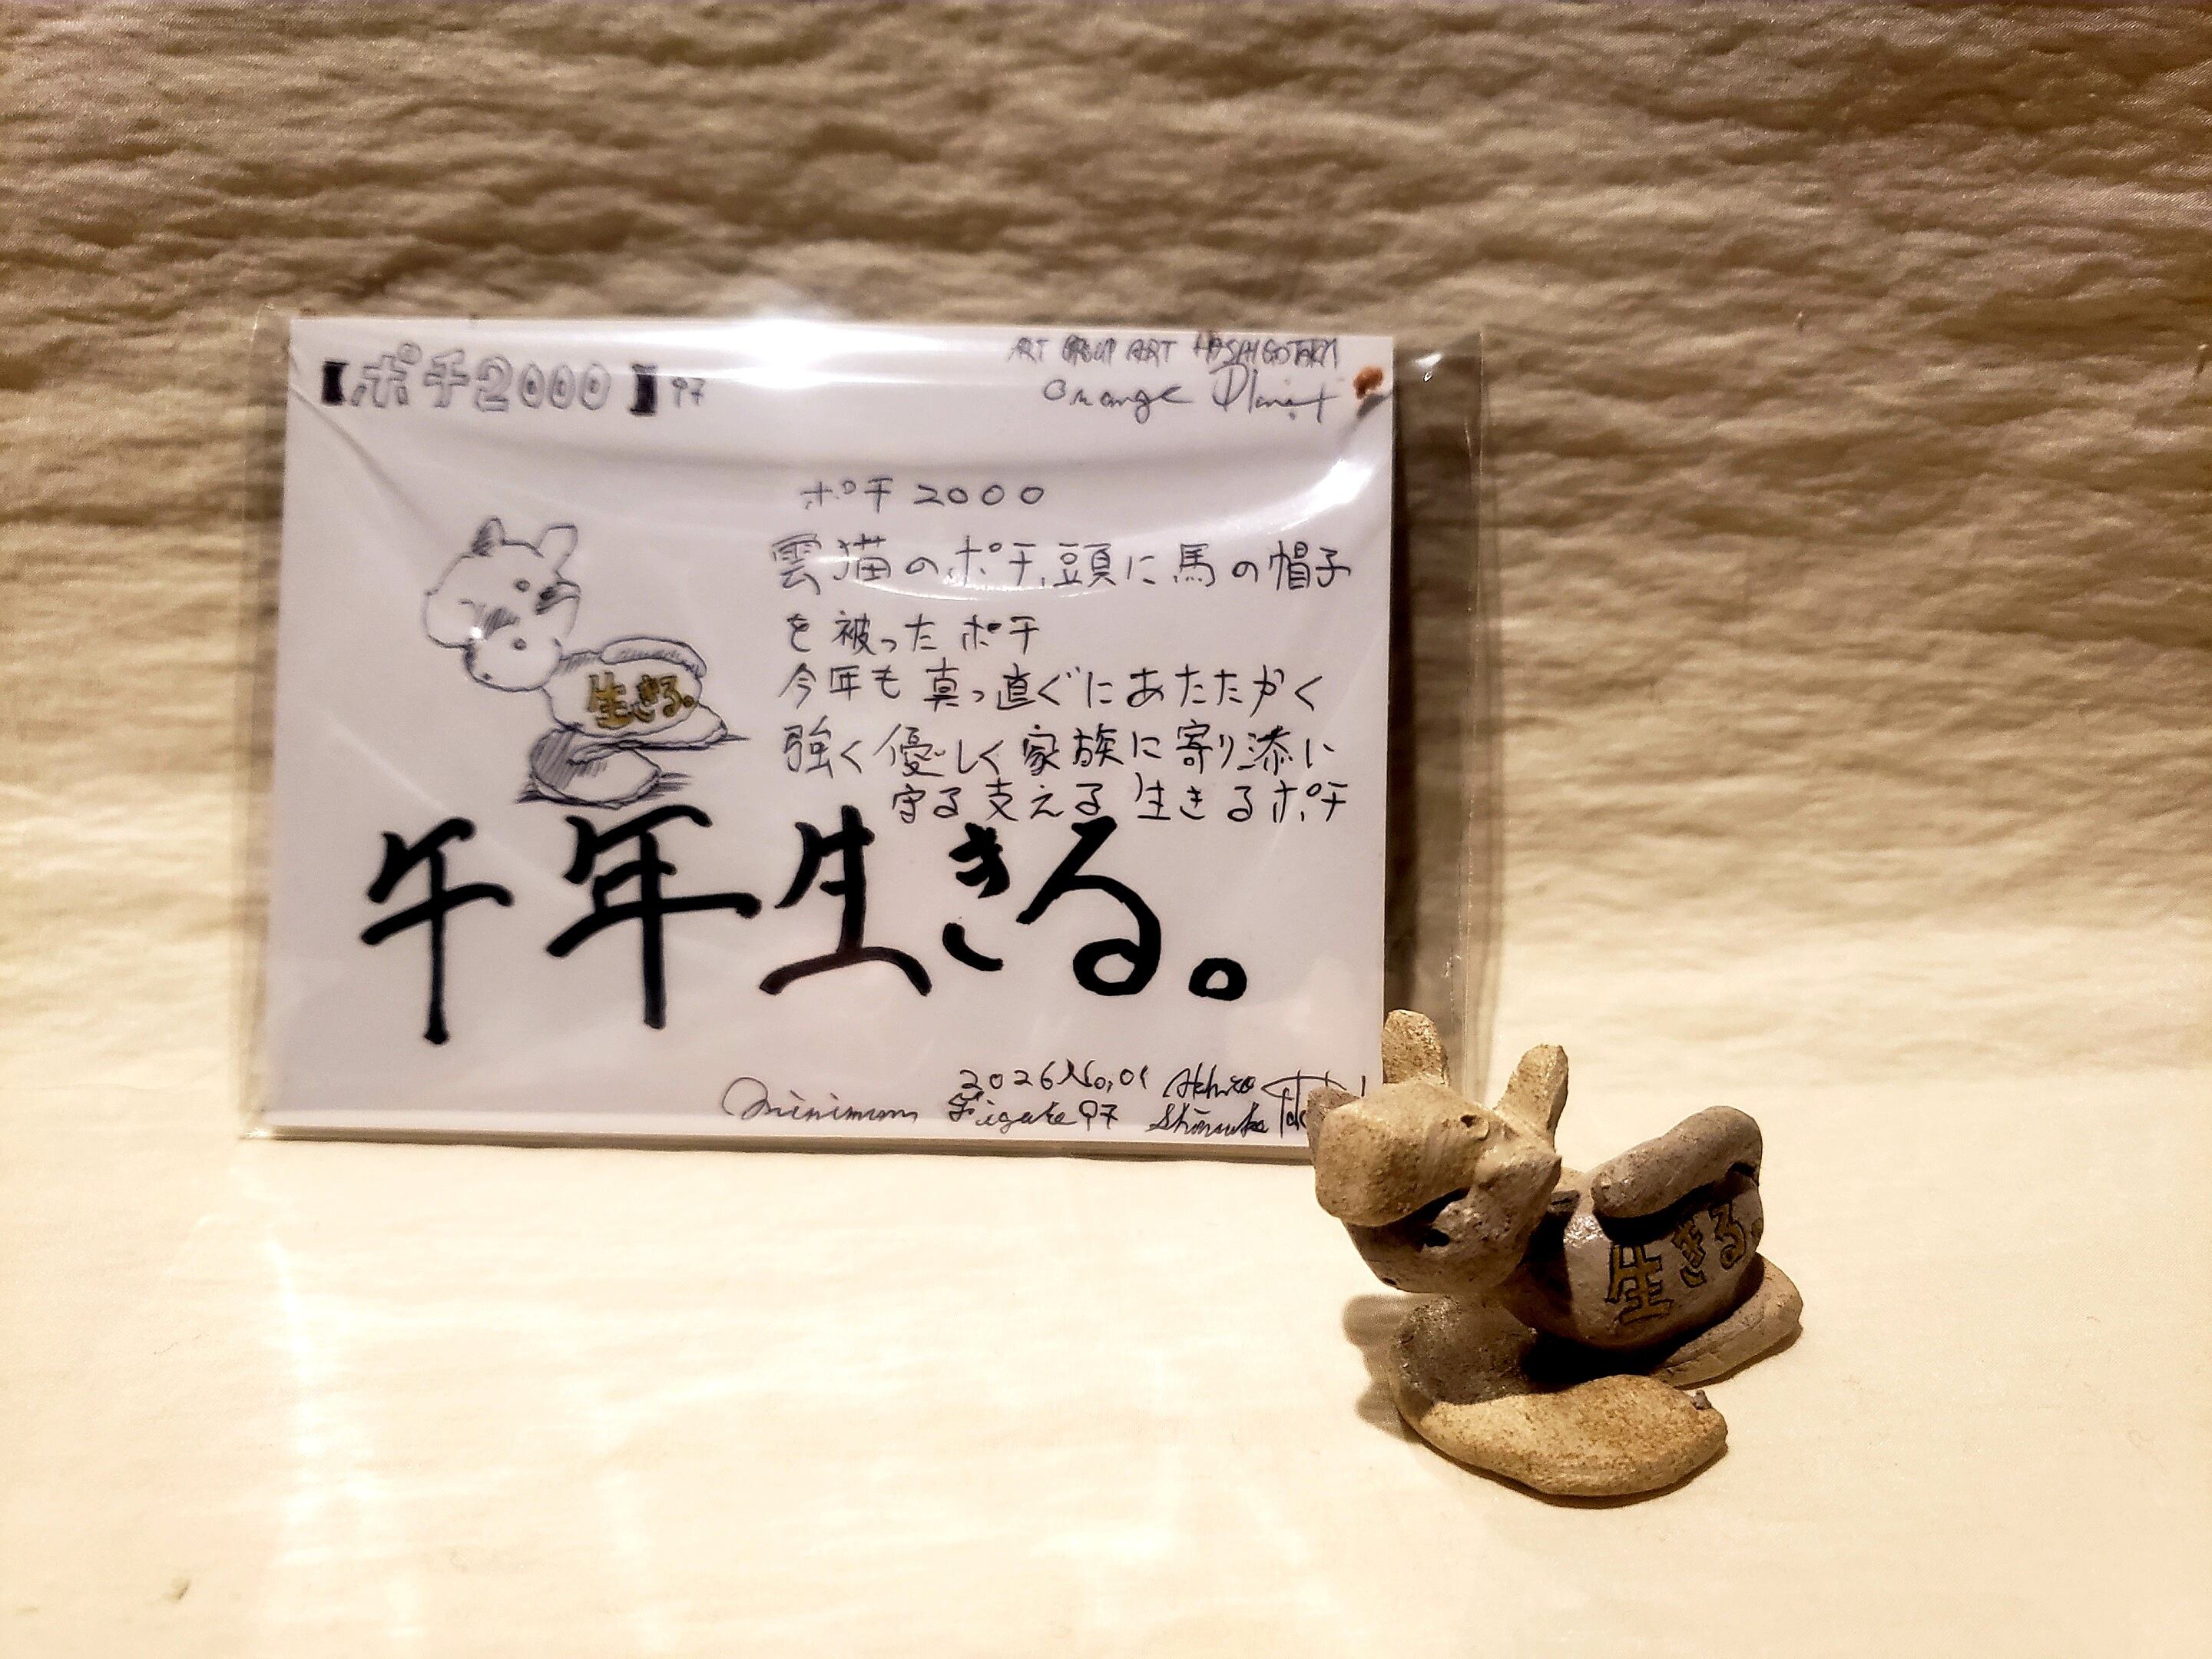 【ポチ2000】97
ART GROUP ART HASHIGOTAKA
Orange Planet
ポチ2000
雲猫のポチ、頭に馬の帽子
を被ったポチ
今年も真っ直ぐにあたたかく
強く優しく家族に寄り添い
守る支える生きるポチ
生きる。
午年生きる。
2026 No,01 Akihiro
minimum Figure 97 Shinsuke
生きる。